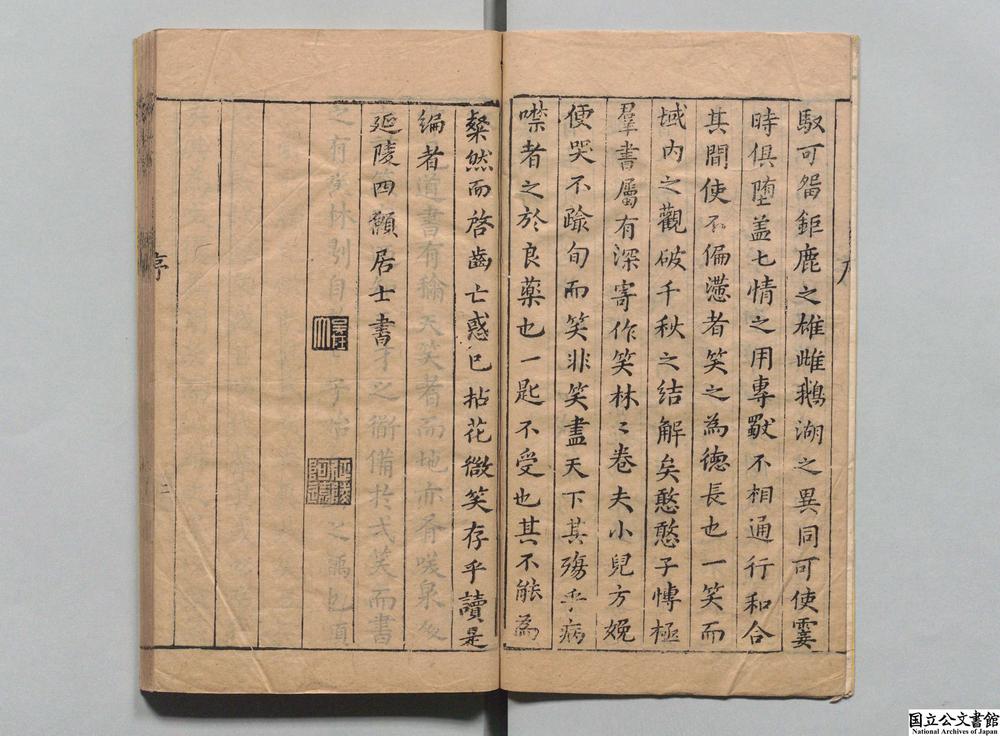 馭可㽞鉅鹿之雄雌鵝湖之異同可使霎
時俱墮盖七情之用專獸不相通行和合
其間使不偏懣者笑之為德長也一笑而
域内之觀破千秋之结解矣憨憨子愽極
羣書屬有深寄作笑林二卷夫小兒方娩
便哭不踰旬而笑非笑盡天下其殤乎病
噤者之於良藥也一匙不受也其不能為
粲然而啓齒亡惑已拈花微笑存乎讀是
编者
延陵四願居士書
序
二
国立公文書館
National Archives of Japan